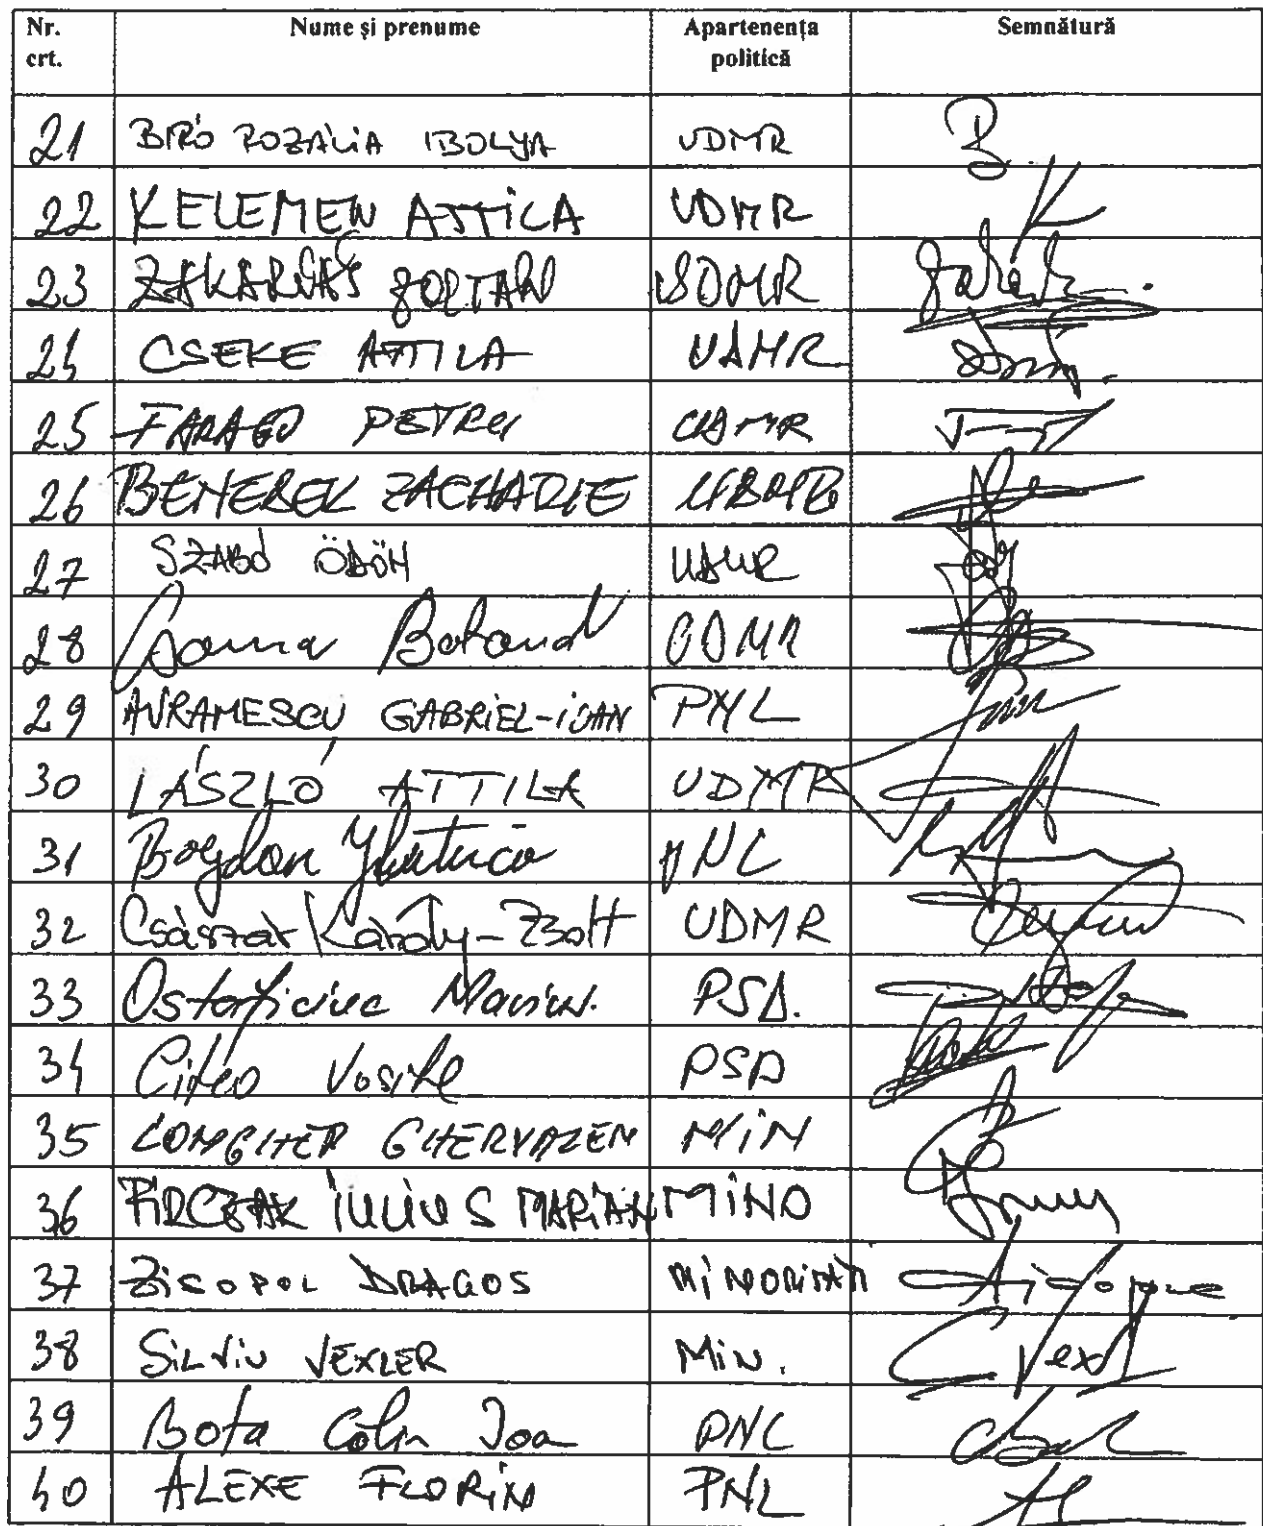 Nr. crt. Nume și prenume Apartenența politică Semnătură
21 BIRÓ ROZÁLIA IBOLYA UDMR
22 KELEMEN ATTILA UDMR
23 ZAKARIÁS ZOLTÁN UDMR
24 CSEKE ATTILA UDMR
25 FARAGO PETRU UDMR
26 BENEDEK ZACHARIE UDMR
27 SZABÓ ÖDÖN UDMR
28 Csoma Botond UDMR
29 AVRAMESCU GABRIEL-IOAN PNL
30 LÁSZLÓ ATTILA UDMR
31 Bogdan PNL
32 Császár Károly-Zsolt UDMR
33 Ostaficiuc Marius. PSD.
34 Cîtea Vasile PSD
35 LONGHER GHERVAZEN MIN
36 FIRCZAK IULIUS MARIAN MINO
37 Zisopol DRAGOS MINORITATI
38 SILVIU VEXLER MIN.
39 Bota Călin Ioan PNL
40 ALEXE FLORIN PNL